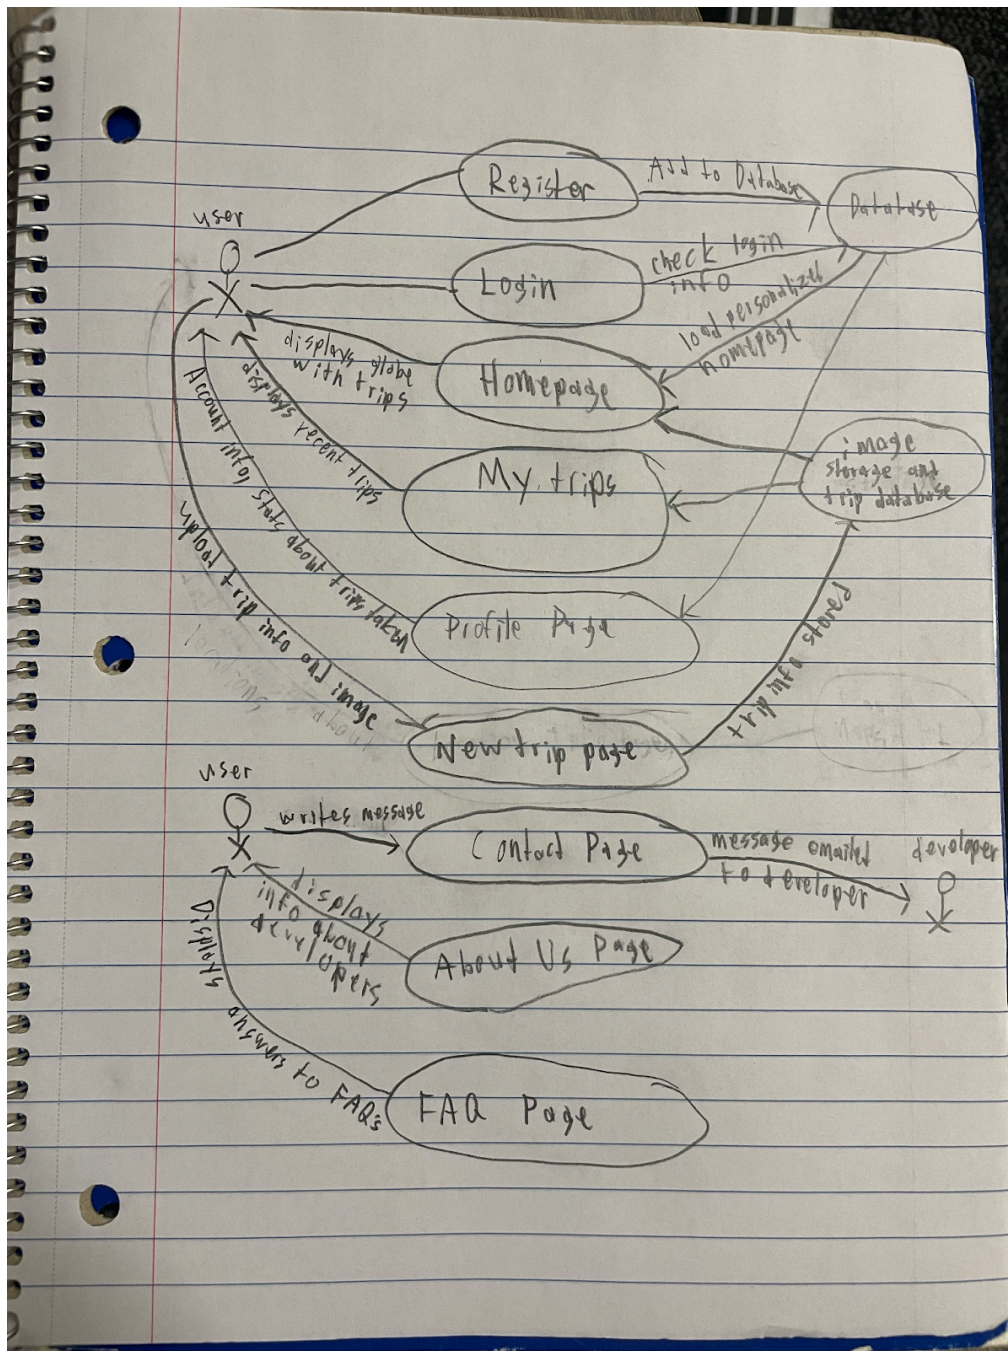 Register
Add to Database
Database
user
Login
check login
info
load personalized
homepage
displays globe
with trips
Homepage
displays recent trips
My trips
image
storage and
trip database
Account info, stats about trips taken
Profile Page
upload trip info and image
New trip page
trip info stored
user
writes message
Contact Page
message emailed
to developer
developer
displays
info about
developers
About Us Page
Displays
answers to FAQ's
FAQ Page